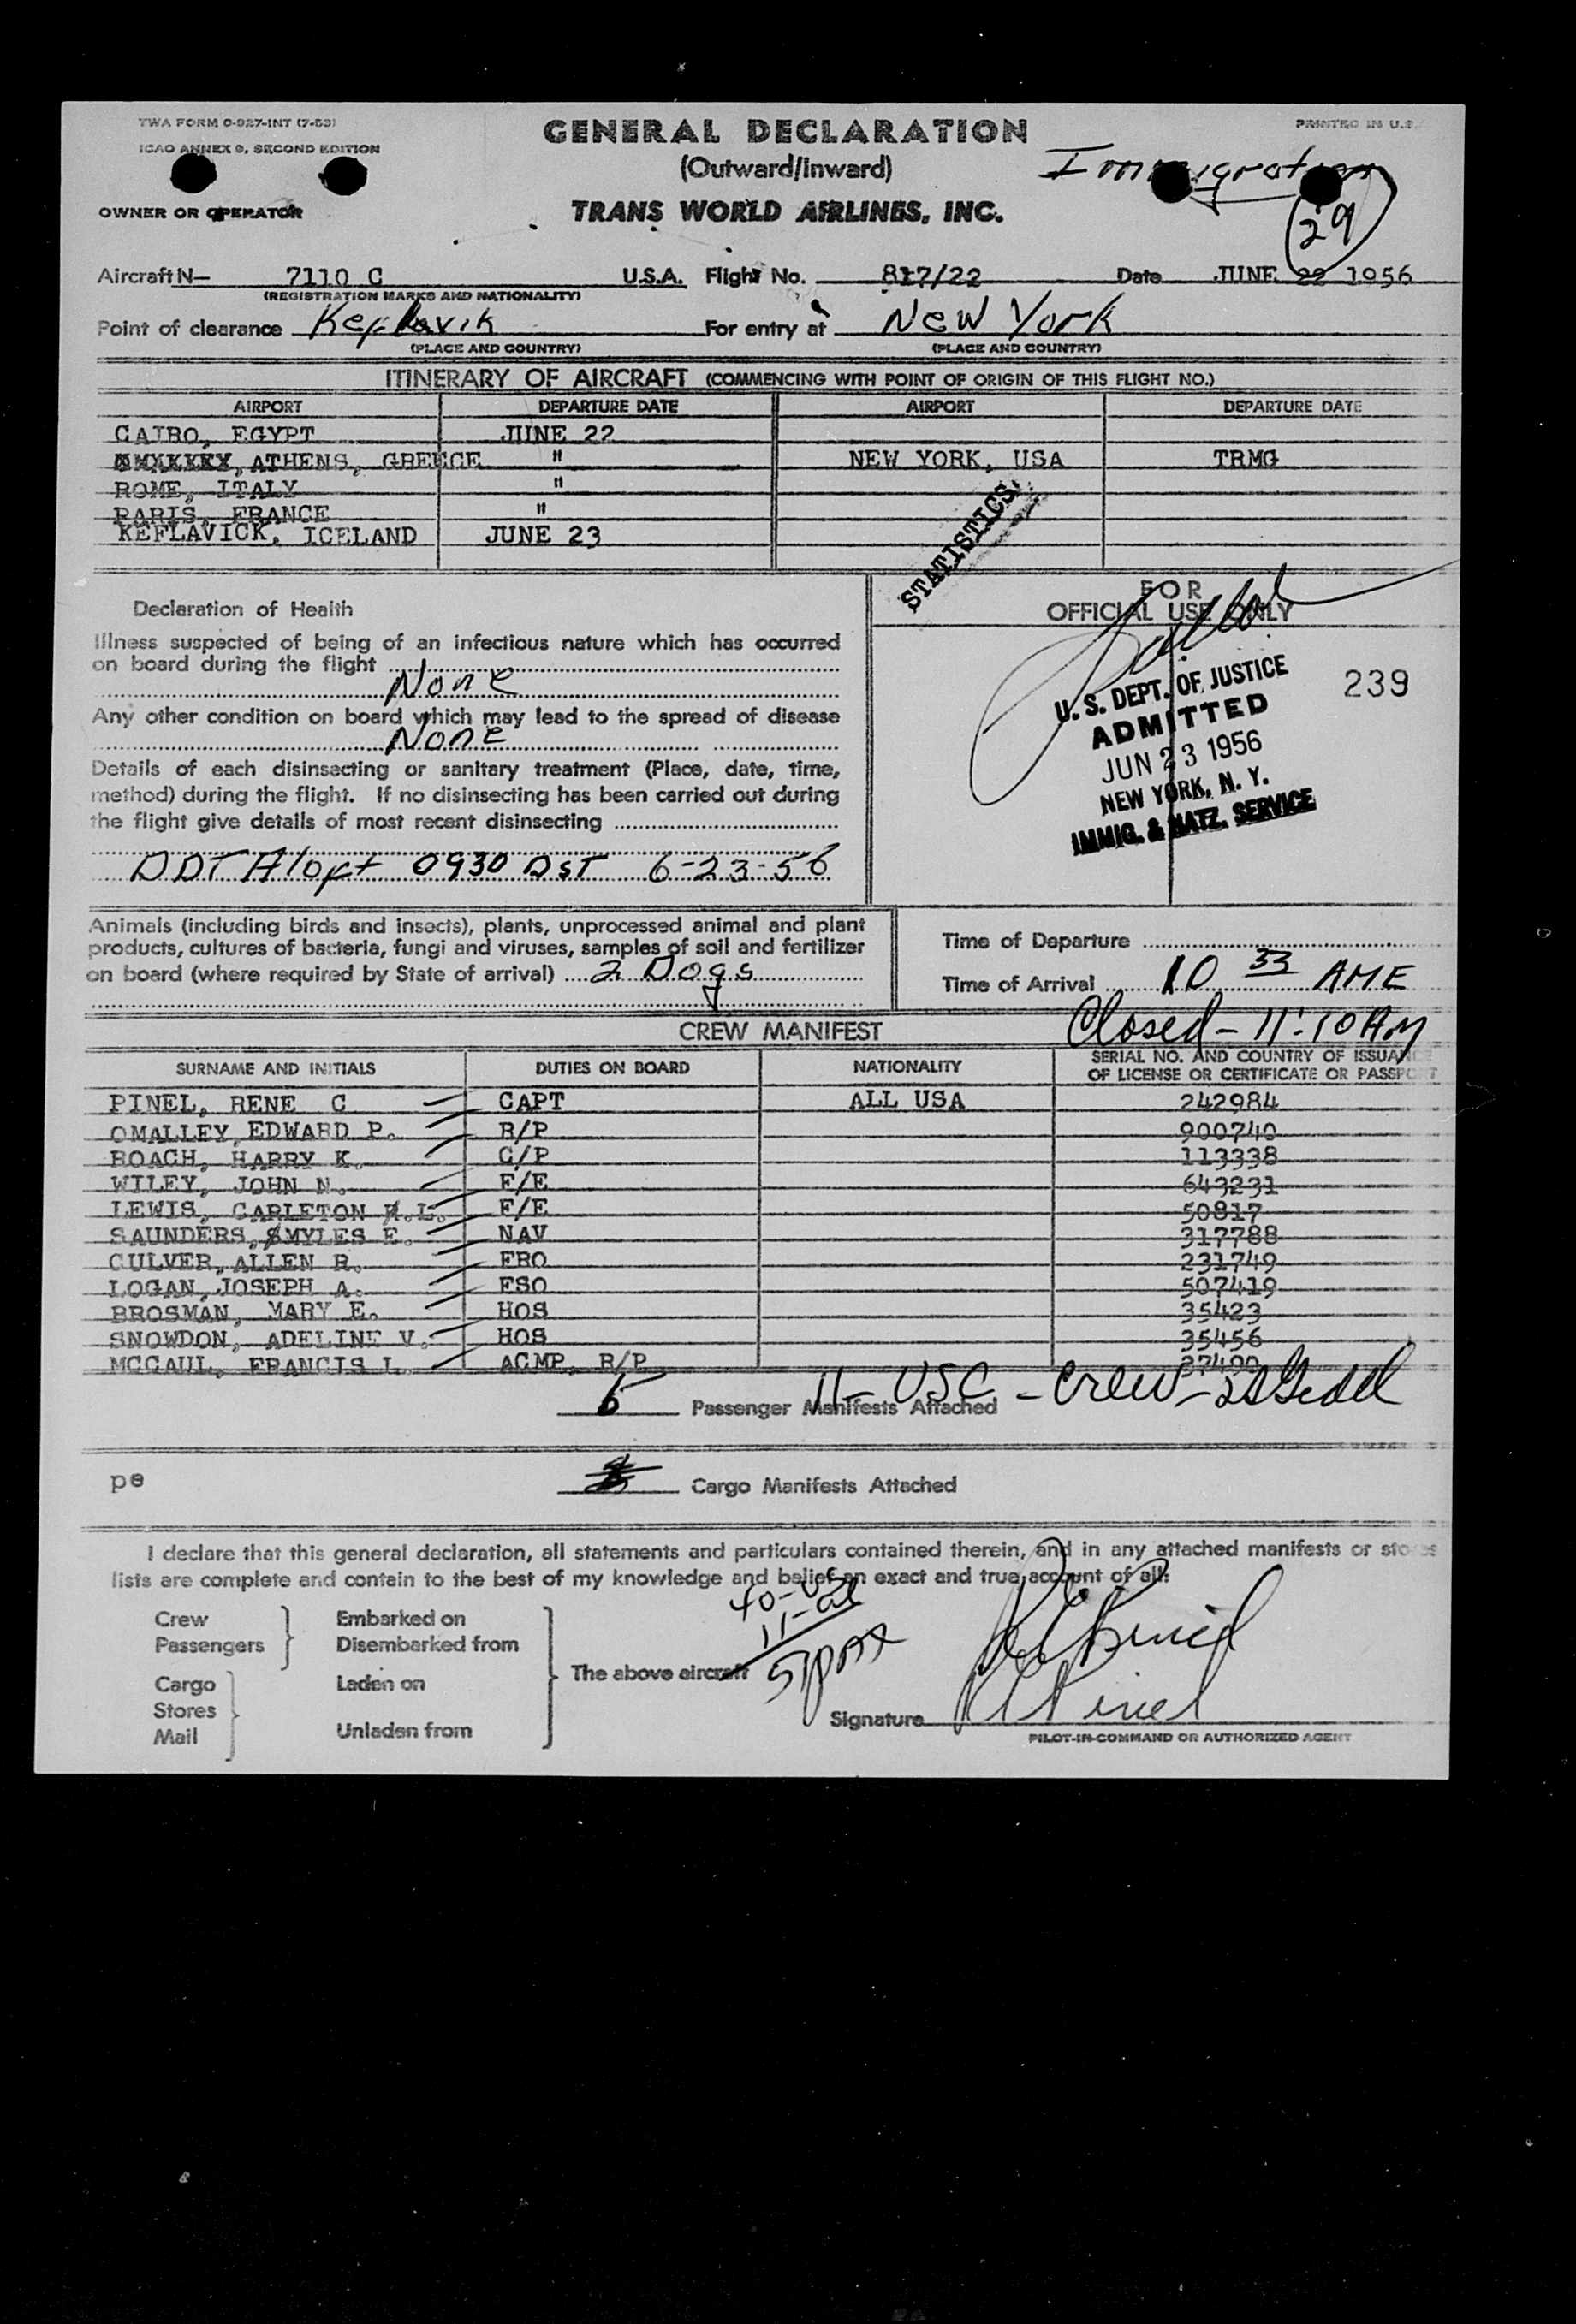 TWA FORM O-927-INT (7-53)
ICAO ANNEX 9, SECOND EDITION
GENERAL DECLARATION
(Outward/Inward)
TRANS WORLD AIRLINES, INC.
PRINTED IN U.S.
Immigration
29
OWNER OR OPERATOR
Aircraft N— 7110 C U.S.A. Flight No. 817/22 Date JUNE 22 1956
(REGISTRATION MARKS AND NATIONALITY)
Point of clearance Keflavik For entry at New York
(PLACE AND COUNTRY) (PLACE AND COUNTRY)
ITINERARY OF AIRCRAFT (COMMENCING WITH POINT OF ORIGIN OF THIS FLIGHT NO.)
AIRPORT DEPARTURE DATE AIRPORT DEPARTURE DATE
CAIRO, EGYPT JUNE 22
ATHENS, GREECE " NEW YORK, USA TRMG
ROME, ITALY "
PARIS, FRANCE "
KEFLAVICK, ICELAND JUNE 23
STATISTICS
Declaration of Health
Illness suspected of being of an infectious nature which has occurred
on board during the flight
None
Any other condition on board which may lead to the spread of disease
None
Details of each disinsecting or sanitary treatment (Place, date, time,
method) during the flight. If no disinsecting has been carried out during
the flight give details of most recent disinsecting
DDT Aloft 0930 DST 6-23-56
FOR
OFFICIAL USE ONLY
239
U. S. DEPT. OF JUSTICE
ADMITTED
JUN 23 1956
NEW YORK, N. Y.
IMMIG. & NATZ. SERVICE
Animals (including birds and insects), plants, unprocessed animal and plant
products, cultures of bacteria, fungi and viruses, samples of soil and fertilizer
on board (where required by State of arrival) 2 Dogs
Time of Departure
Time of Arrival 10 33 AME
Closed - 11:10 AM
CREW MANIFEST
SURNAME AND INITIALS DUTIES ON BOARD NATIONALITY SERIAL NO. AND COUNTRY OF ISSUANCE
OF LICENSE OR CERTIFICATE OR PASSPORT
PINEL, RENE C CAPT ALL USA 242984
OMALLEY, EDWARD P. R/P 900740
ROACH, HARRY K. C/P 113338
WILEY, JOHN N. F/E 643231
LEWIS, CARLETON L. F/E 50817
SAUNDERS, MYLES E. NAV 317788
CULVER, ALLEN R. FRO 231749
LOGAN, JOSEPH A. FSO 507419
BROSMAN, MARY E. HOS 35423
SNOWDON, ADELINE V. HOS 35456
MCCAUL, FRANCIS L. ACMP. R/P 37490
11- USC - Crew -
5 Passenger Manifests Attached
pe
Cargo Manifests Attached
I declare that this general declaration, all statements and particulars contained therein, and in any attached manifests or stores
lists are complete and contain to the best of my knowledge and belief an exact and true account of all:
40-
11-
51
Crew Embarked on
Passengers Disembarked from
The above aircraft
Cargo Laden on
Stores
Mail Unladen from
Signature R C Pinel
PILOT-IN-COMMAND OR AUTHORIZED AGENT